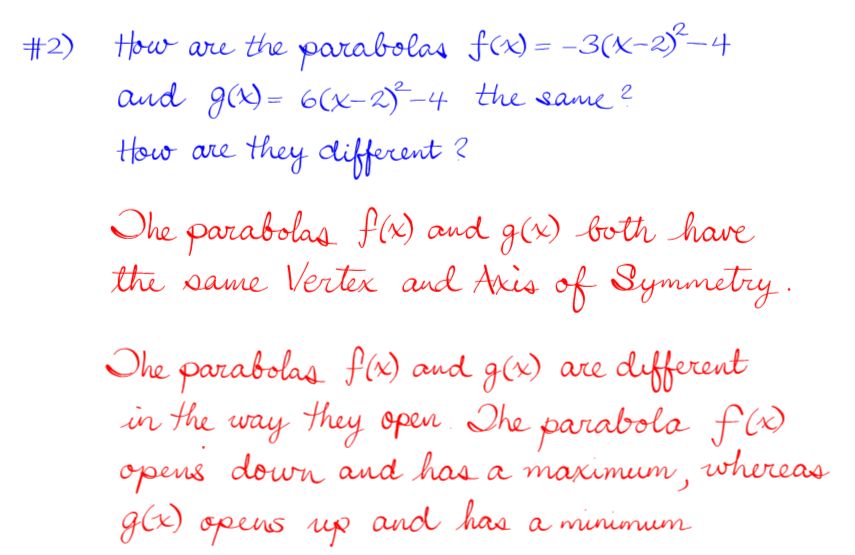 #2) How are the parabolas f(x) = -3(x-2)²-4
and g(x) = 6(x-2)²-4 the same?
How are they different?
The parabolas f(x) and g(x) both have
the same Vertex and Axis of Symmetry.
The parabolas f(x) and g(x) are different
in the way they open. The parabola f(x)
opens down and has a maximum, whereas
g(x) opens up and has a minimum